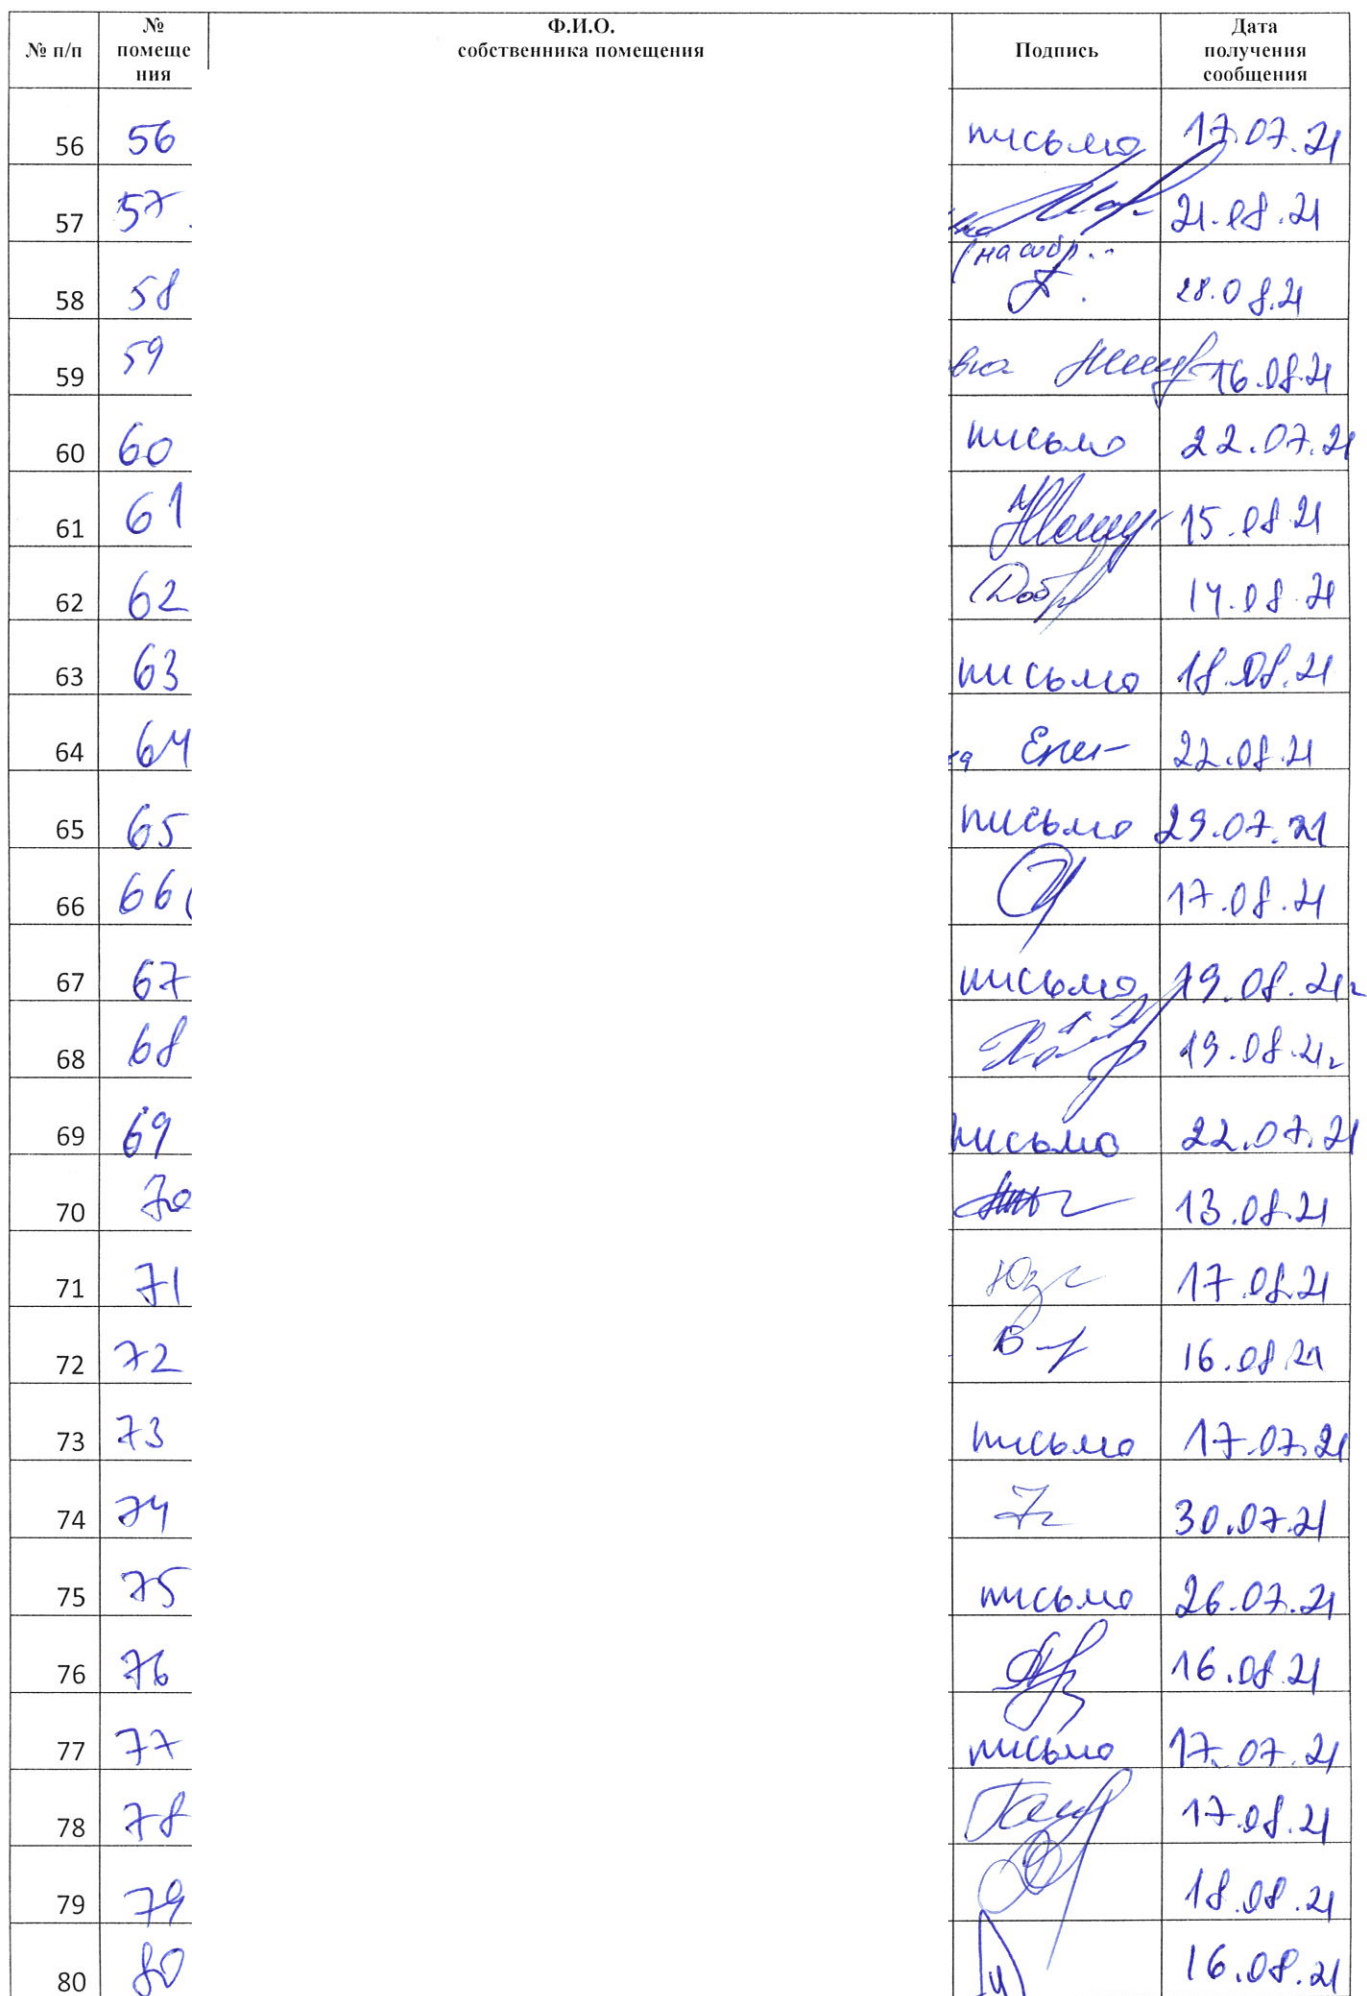 № п/п № помеще ния Ф.И.О. собственника помещения Подпись Дата получения сообщения
56 56 письмо 17.07.21
57 57 21.08.21
58 58 (на собр. 28.08.21
59 59 вна 16.08.21
60 60 письмо 22.07.21
61 61 15.08.21
62 62 14.08.21
63 63 письмо 18.08.21
64 64 22.08.21
65 65 письмо 29.07.21
66 66 17.08.21
67 67 письмо 19.08.21г
68 68 19.08.21г
69 69 письмо 22.07.21
70 70 13.08.21
71 71 17.08.21
72 72 16.08.21
73 73 письмо 17.07.21
74 74 30.07.21
75 75 письмо 26.07.21
76 76 16.08.21
77 77 письмо 17.07.21
78 78 17.08.21
79 79 18.08.21
80 80 16.08.21